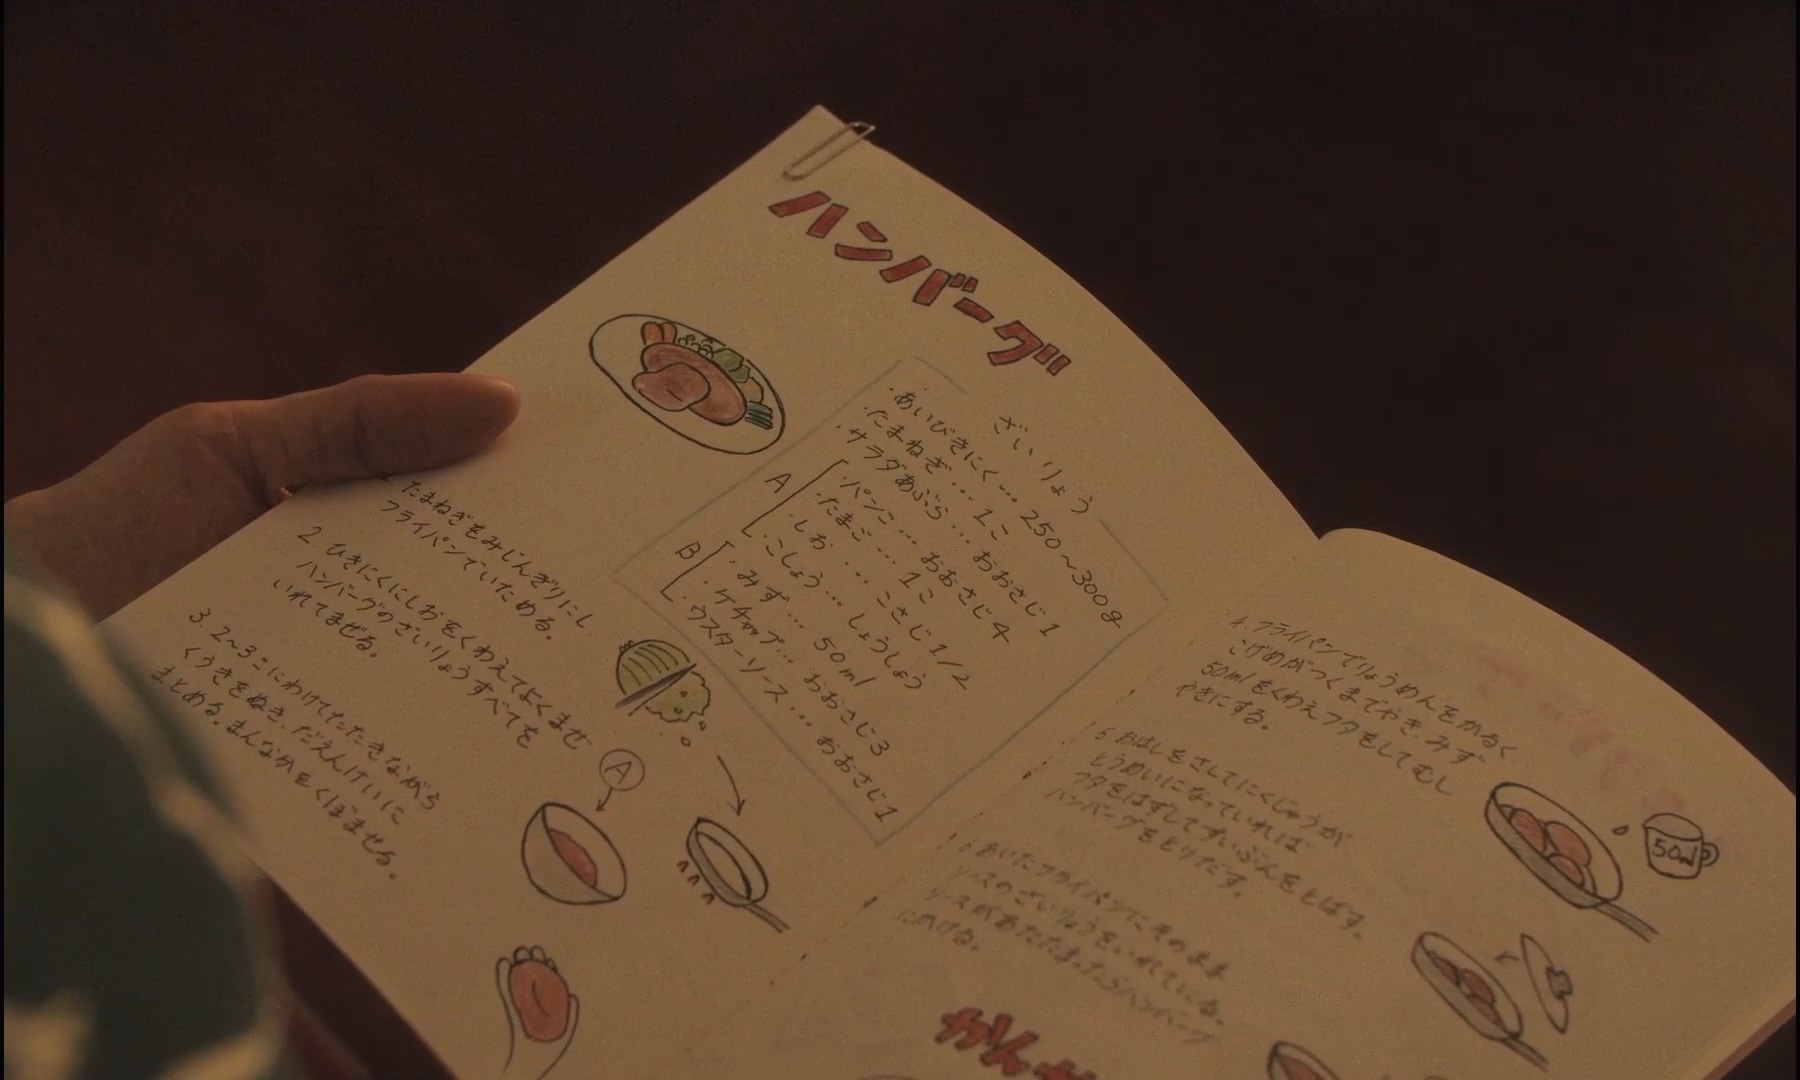 ハンバーグ
ざいりょう
・あいびきにく…250〜300g
・たまねぎ…1こ
・サラダあぶら…おおさじ1
A
・パンこ…おおさじ4
・たまご…1こ
・しお…こさじ1/2
・こしょう…しょうしょう
B
・みず…50ml
・ケチャップ…おおさじ3
・ウスターソース…おおさじ1
たまねぎをみじんぎりにし
フライパンでいためる。
2 ひきにくにしおをくわえてよくまぜ
ハンバーグのざいりょうすべてを
いれてまぜる。
3 2〜3こにわけてたたきながら
くうきをぬき、だえんけいに
まとめる。まんなかをくぼませる。
A
4.フライパンでりょうめんをかるく
こげめがつくまでやき、みず
50mlをくわえフタをしてむし
やきにする。
50ml
おはしをさしてにくじゅうが
とうめいになっていれば
フタをはずしてすいぶんをとばす。
ハンバーグをとりだす。
6 あいたフライパンにそのまま
ソースのざいりょうをいれてにる。
ソースがあたたまったらハンバーグ
にかける。